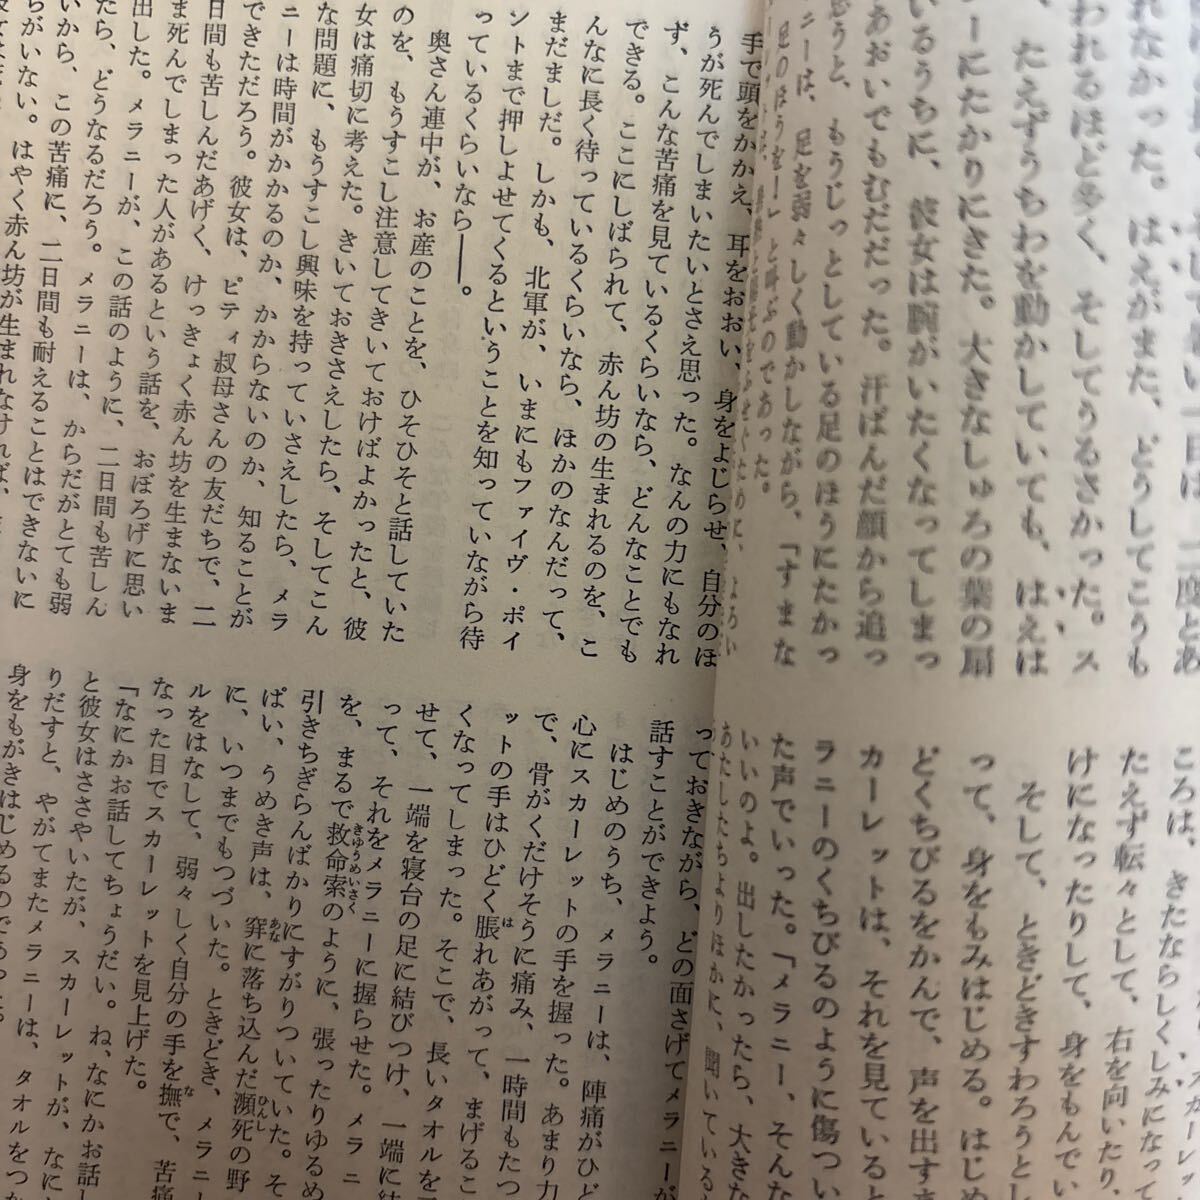 れなかった。はえがまた、どうしてこうも
われるほど多く、そしてうるさかった。ス
たえずうちわを動かしていても、はえは
ーにたかりにきた。大きなしゅろの葉の扇
いるうちに、彼女は腕がいたくなってしまっ
あおいでもむだだった。汗ばんだ顔から追っ
思うと、もうじっとしている足のほうにたかっ
ニーは、足を弱々しく動かしながら、「すまな
足のほうを！」と呼ぶのであった。
手で頭をかかえ、耳をおおい、身をよじらせ、自分のほ
うが死んでしまいたいとさえ思った。なんの力にもなれ
ず、こんな苦痛を見ているくらいなら、どんなことでも
できる。ここにしばられて、赤ん坊の生まれるのを、こ
んなに長く待っているくらいなら、ほかのなんだって、
まだましだ。しかも、北軍が、いまにもファイヴ・ポイ
ントまで押しよせてくるということを知っていながら待
っているくらいなら――。
奥さん連中が、お産のことを、ひそひそと話していた
のを、もうすこし注意してきいておけばよかったと、彼
女は痛切に考えた。きいておきさえしたら、そしてこん
な問題に、もうすこし興味を持っていさえしたら、メラ
ニーは時間がかかるのか、かからないのか、知ることが
できただろう。彼女は、ピティ叔母さんの友だちで、二
日間も苦しんだあげく、けっきょく赤ん坊を生まないま
ま死んでしまった人があるという話を、おぼろげに思い
出した。メラニーが、この話のように、二日間も苦しん
たら、どうなるだろう。メラニーは、からだがとても弱
いから、この苦痛に、二日間も耐えることはできないに
ちがいない。はやく赤ん坊が生まれなければ、
ころは、きたならしくしみになって
たえず転々として、右を向いたり、
けになったりして、身をもんでい
そして、ときどきすわろうとし
って、身をもみはじめる。はじめ
どくちびるをかんで、声を出すま
カーレットは、それを見ていると
ラニーのくちびるのように傷つい
た声でいった。「メラニー、そんな
いいのよ。出したかったら、大きな
あたしたちよりほかに、聞いている
っておきながら、どの面さげてメラニーが
話すことができよう。
はじめのうち、メラニーは、陣痛がひど
心にスカーレットの手を握った。あまり力
で、骨がくだけそうに痛み、一時間もたつ
ットの手はひどく脹れあがって、まげるこ
くなってしまった。そこで、長いタオルを
せて、一端を寝台の足に結びつけ、一端に
って、それをメラニーに握らせた。メラニ
を、まるで救命索のように、張ったりゆるめ
引きちぎらんばかりにすがりついていた。そ
ぱい、うめき声は、穽に落ち込んだ瀕死の野
に、いつまでもつづいた。ときどき、メラニー
ルをはなして、弱々しく自分の手を撫で、苦痛
なった目でスカーレットを見上げた。
「なにかお話してちょうだい。ね、なにかお話し
と彼女はささやいたが、スカーレットが、なに
りだすと、やがてまたメラニーは、タオルをつか
身をもがきはじめるのであった。